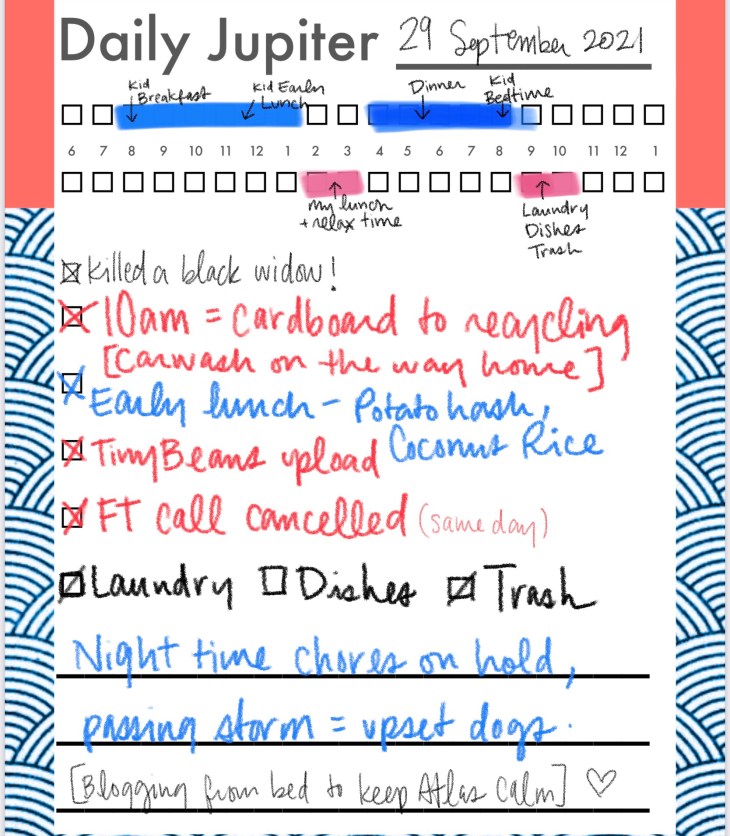 Daily Jupiter 29 September 2021
Kid Breakfast
Kid Early Lunch
Dinner
Kid Bedtime
6 7 8 9 10 11 12 1 2 3 4 5 6 7 8 9 10 11 12 1
my lunch
+ relax time
Laundry
Dishes
Trash
Killed a black widow!
10am = Cardboard to recycling
[Carwash on the way home]
Early lunch - Potato hash,
Coconut Rice
TinyBeans upload
FT call cancelled (same day)
Laundry Dishes Trash
Night time chores on hold,
passing storm = upset dogs.
[Blogging from bed to keep Atlas Calm] ♡